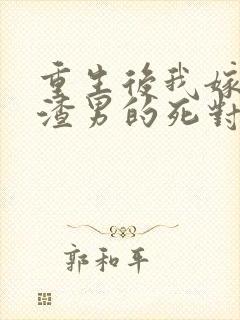 重生後我嫁
渣男的死對
郭和平